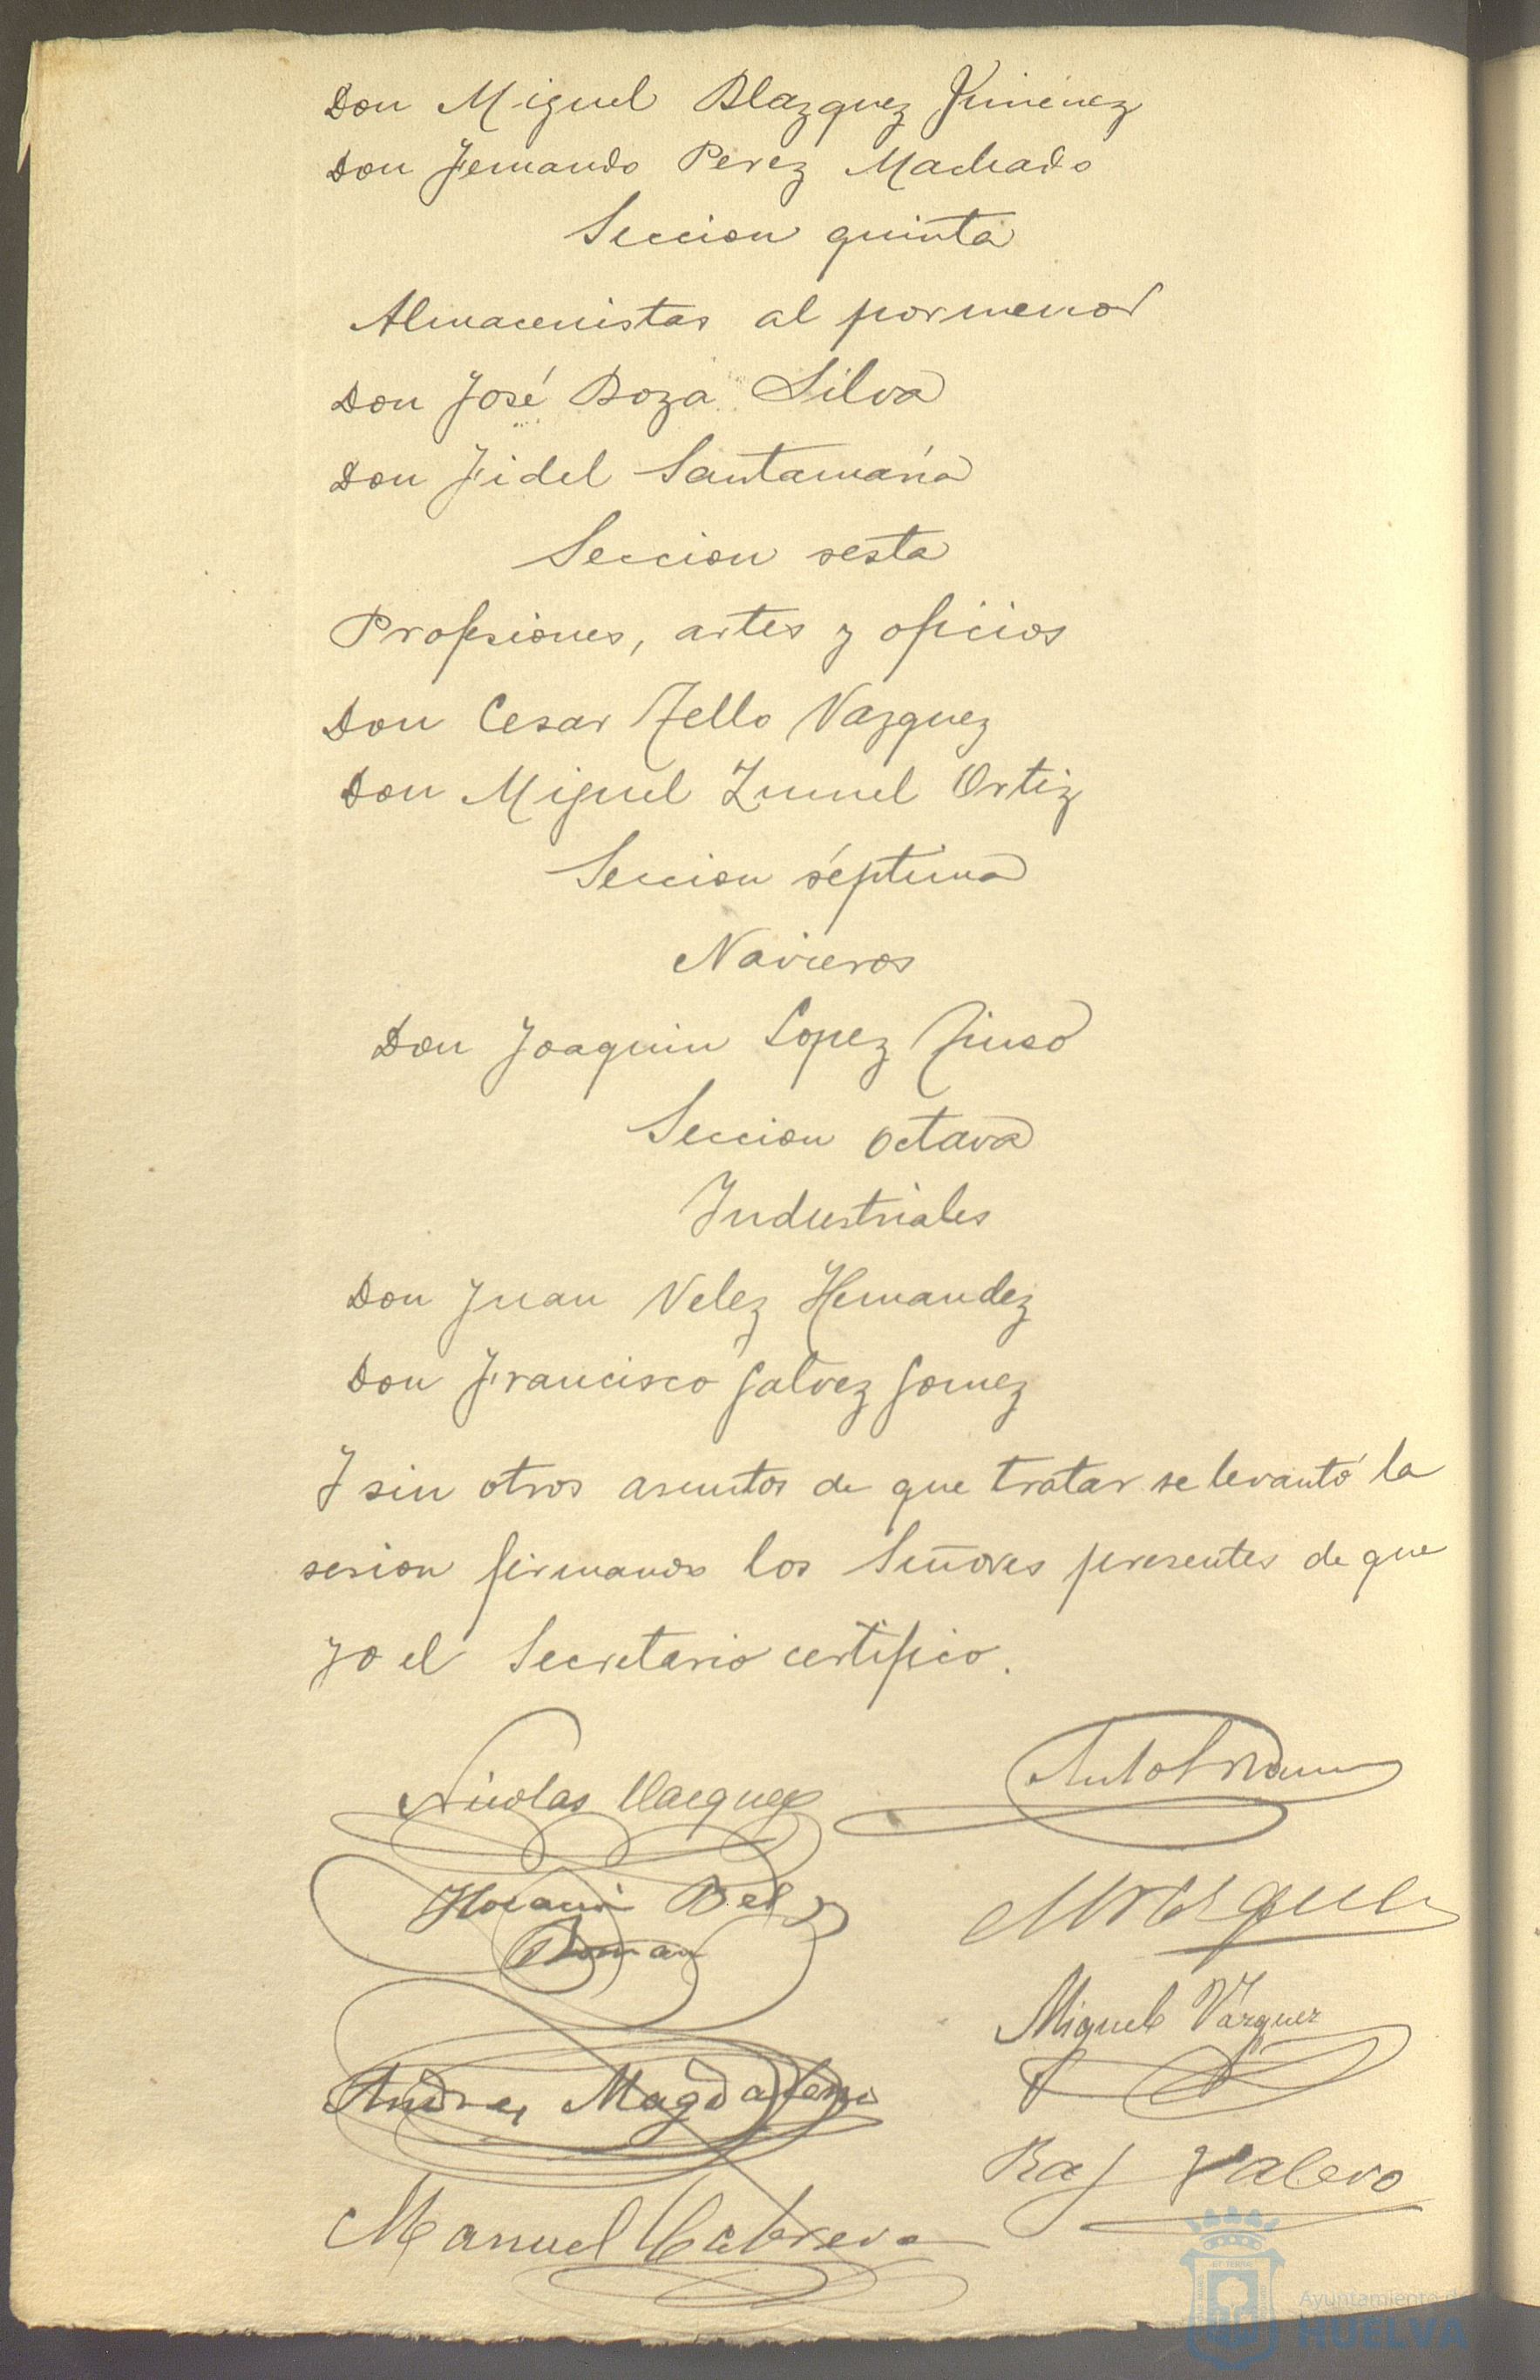 Don Miguel Blazquez Jimenez
Don Fernando Perez Machado
Seccion quinta
Almacenistas al por menor
Don José Boza Silva
Don Fidel Santamaría
Seccion sesta
Profesiones, artes y oficios
Don Cesar Tello Vazquez
Don Miguel Zumel Ortiz
Seccion séptima
Navieros
Don Joaquin Lopez
Seccion octava
Industriales
Don Juan Velez Hernandez
Don Francisco Galvez Gomez
Y sin otros asuntos de que tratar se levantó la
sesion firmando los Señores presentes de que
yo el Secretario certifico.
Nicolas Vazquez
Horacio Bel
Roman
Miguel Vázquez
Andres Magdaleno
Raf Valero
Manuel Cabrera
Ayuntamiento de
HUELVA